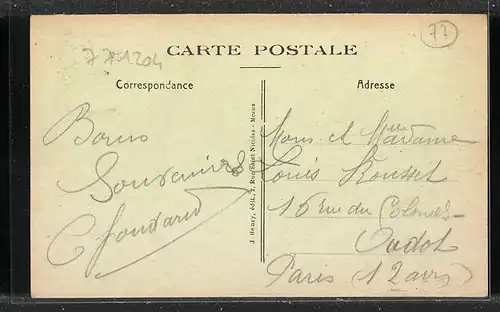 7 7 1204
77
CARTE POSTALE
Correspondance
Adresse
Bons
Souvenirs
J. Boury, édit., 7, Rue Saint Nicolas - Meaux
Mons et Madame
Louis Rousset
15 rue du Colonel
Oudot
Paris (12 arr)